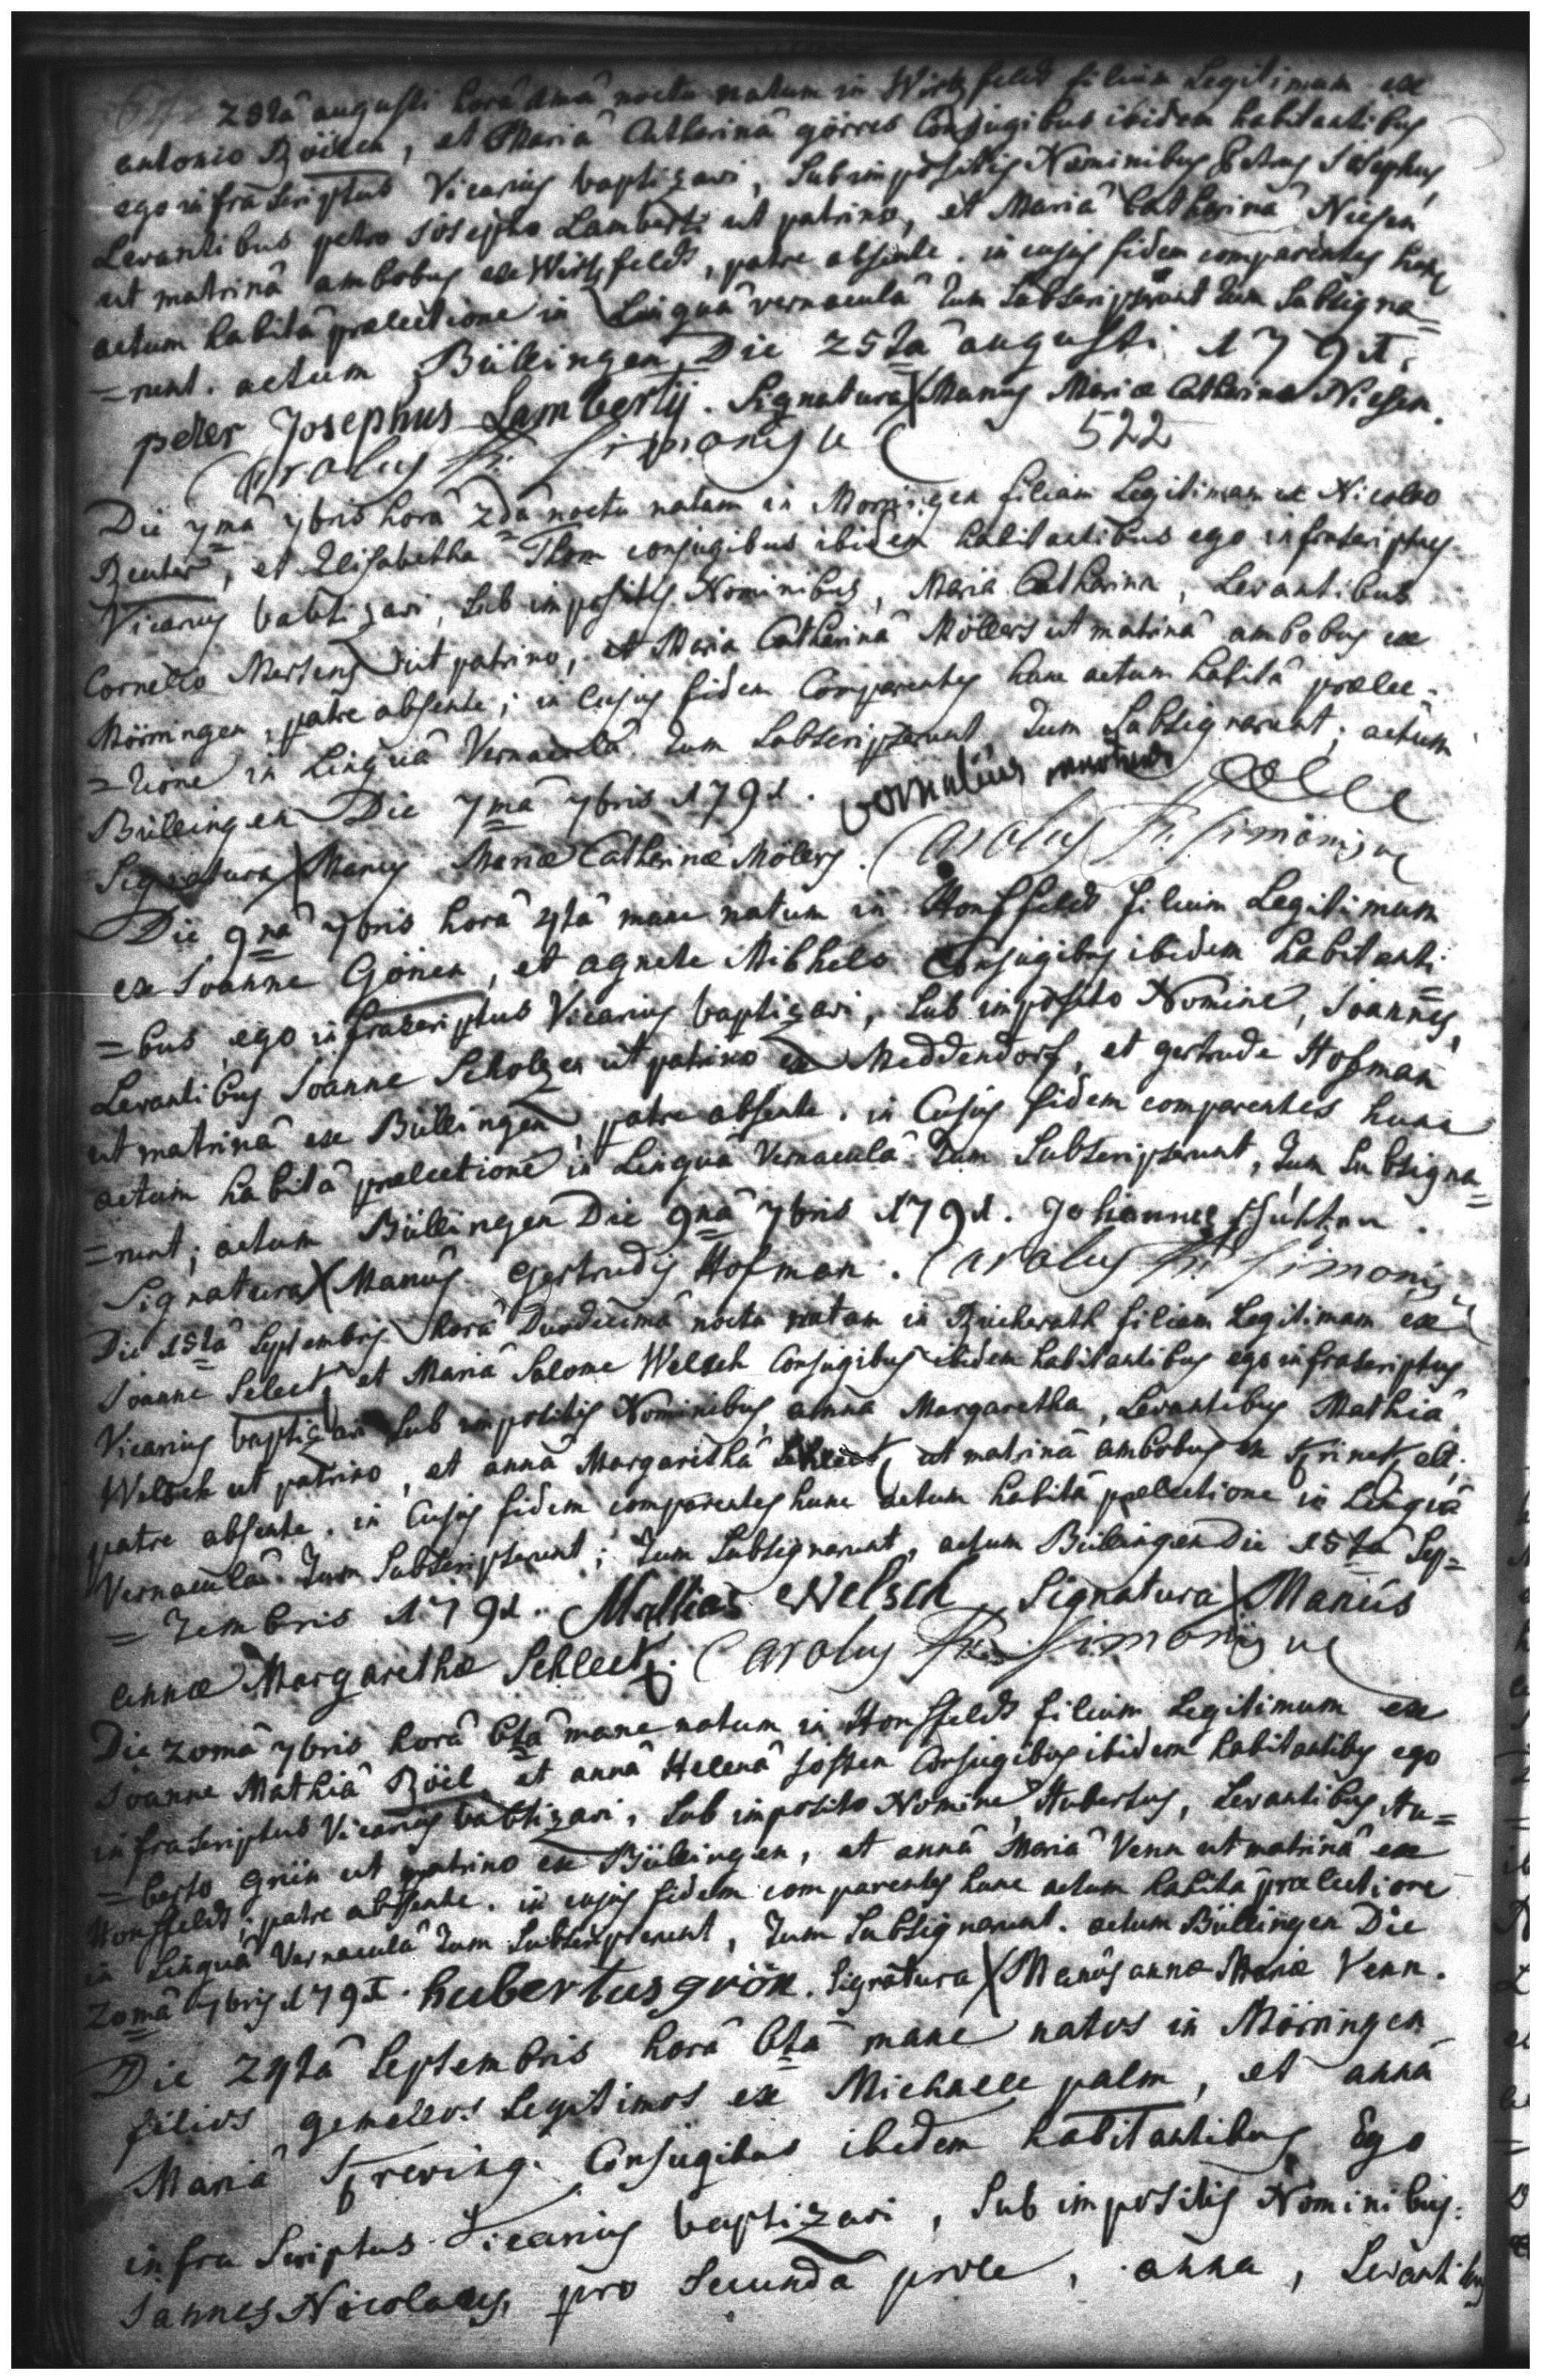 25tâ augusti horâ 1mâ noctu natum in Wirtzfeldt filium Legitimum ex
antonio Röilen, et Mariâ Catharinâ görres Conjugibus ibidem habitantibus
ego infrascriptus Vicarius baptizavi, Sub impositis Nominibus Petrus Josephus,
Levantibus petro Josepho Lamberti ut patrino, et Mariâ Catharinâ Niesen
ut matrinâ ambobus ex Wirtzfeldt, patre absente. in cujus fidem comparentes hunc
actum habitâ prælectione in Linguâ vernaculâ tum Subscripserunt tum Subsigna=
=runt. actum Büllingen Die 25tâ augusti 1791.
peter Josephus Lambertÿ. Signatura X Manus Mariæ Catharinæ Niesen.
Carolus Fr. Simonis 522
Die 7mâ 7bris horâ 2dâ noctu natam in Morringen filiam Legitimam ex Nicolao
Reuter, et Elisabetha Thom conjugibus ibidem habitantibus ego infrascriptus
Vicarius babtizavi, Sub impositis Nominibus, Maria Catharina, Levantibus
Cornelio Mertens ut patrino, et Maria Catharinâ Möllers ut matrinâ ambobus ex
Mörringen, patre absente; in Cujus fidem Comparentes hunc actum habitâ prælec=
=tione in Linguâ Vernaculâ tum Subscripserunt tum Subsignarunt; actum
Büllingen Die 7mâ 7bris 1791. Cornelius
Signatura X Manus Mariæ Catharinæ Möllers. Carolus Fr. Simonis
Die 9nâ 7bris horâ 4tâ mane natum in Honsfeldt filium Legitimum
ex Joanne Gönen, et agnete Mikhels Conjugibus ibidem habitanti
=bus, ego infrascriptus Vicarius baptizavi, Sub imposito Nomine, Joannes,
Levantibus Joanne Scholzen ut patrino ex Meddendorf, et gertrude Hofman
ut matrinâ ex Büllingen, patre absente. in Cujus fidem comparentes hunc
actum habitâ prælectione in Linguâ Vernaculâ tum Subscripserunt, tum Subsigna=
=runt; actum Büllingen Die 9nâ 7bris 1791. Johannes
Signatura X Manus Gertrudis Hofman. Carolus Fr. Simonis
Die 15tâ Septembris horâ Duodecimâ noctu natam in Rucherath filiam Legitimam ex
Joanne Select, et Mariâ Salome Welsch Conjugibus ibidem habitantibus ego infrascriptus
Vicarius baptizavi Sub impositis Nominibus anna Margaretha, Levantibus Mathiâ
Welsch ut patrino, et annâ Margarethâ Schlect, ut matrinâ ambobus ex
patre absente. in Cujus fidem comparentes hunc actum habitâ prælectione in Linguâ
Vernaculâ tum Subscripserunt; tum Subsignarunt, actum Büllingen Die 15tâ Sep=
=tembris 1791. Mathias Welsch. Signatura X Manus
annæ Margarethæ Schlect. Carolus Fr. Simonis
Die 20mâ 7bris horâ 6tâ mane natum in Honsfeldt filium Legitimum ex
Joanne Mathiâ Röil, et annâ Helenâ Josten Conjugibus ibidem habitantibus ego
infrascriptus Vicarius babtizavi, Sub imposito Nomine, Hubertus, Levantibus Hu=
=berto Grün ut patrino ex Büllingen, et annâ Mariâ Venn ut matrinâ ex
Honsfeldt; patre absente. in cujus fidem comparentes hunc actum habitâ prælectione
in Linguâ Vernaculâ tum Subscripserunt, tum Subsignarunt. actum Büllingen Die
20mâ 7bris 1791. hubertus grön. Signatura X Manus annæ Mariæ Venn.
Die 24tâ Septembris horâ 6tâ mane natos in Mörringen
filios gemellos Legitimos ex Michaele palm, et annâ
Mariâ Conjugibus ibidem habitantibus Ego
infra Scriptus Vicarius baptizavi, Sub impositis Nominibus.
Jannes Nicolaus, pro Secundâ prole, anna, Levantibus